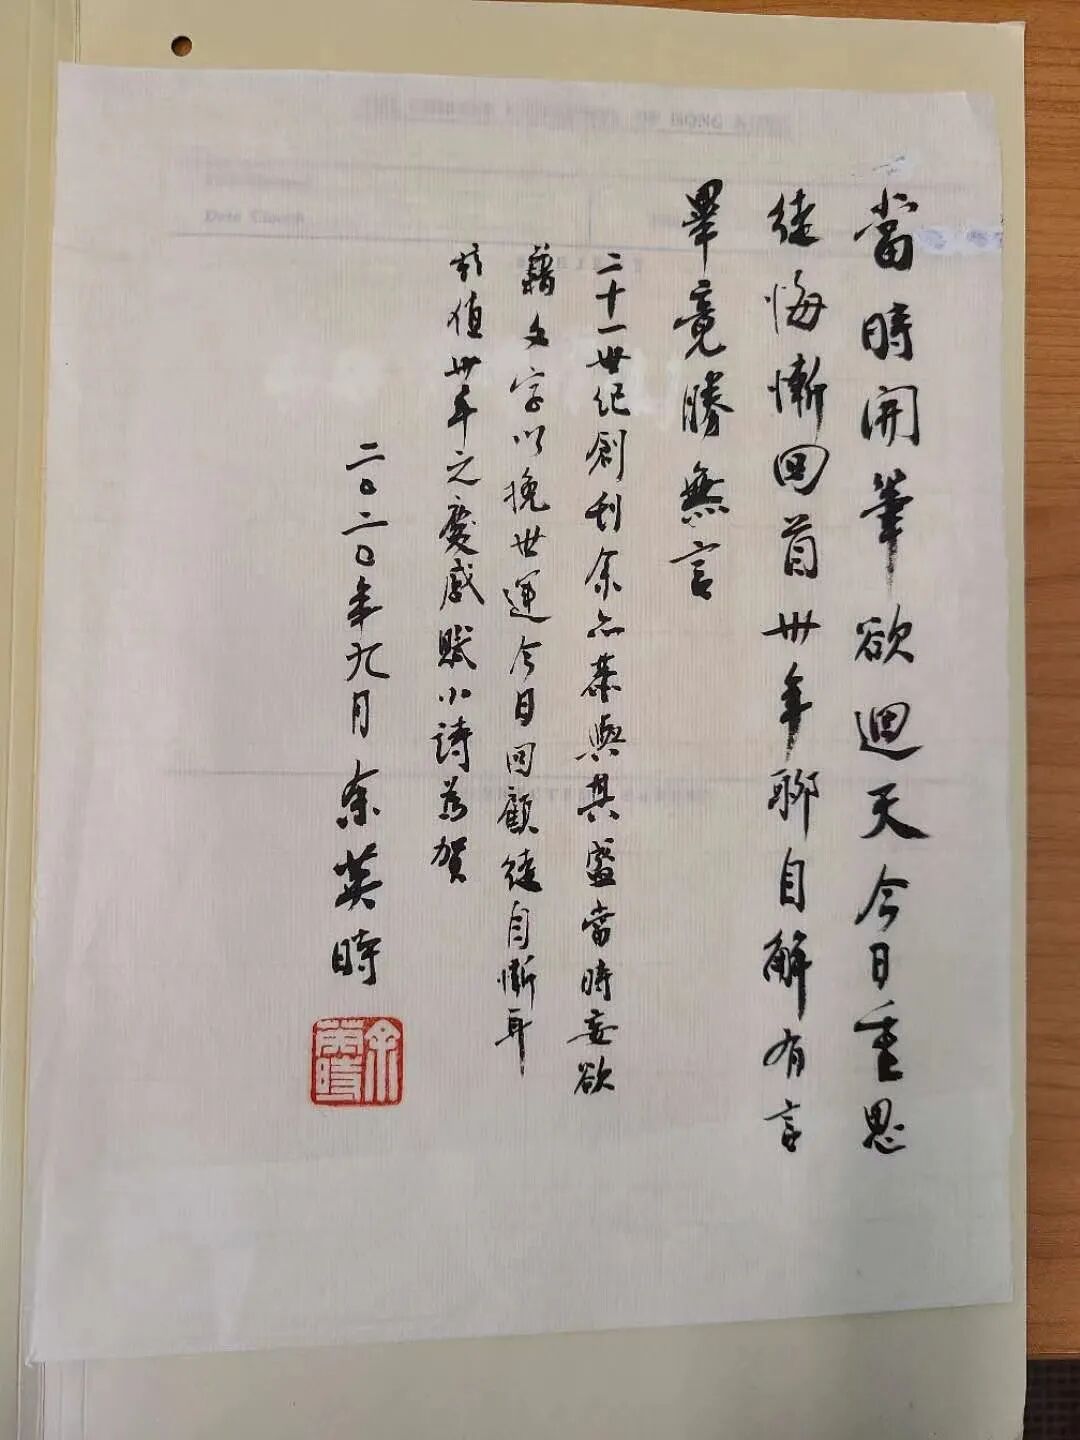 當時開筆欲迴天今日重思
徒悔慚回首卅年聊自解有言
畢竟勝無言
二十一世紀創刊余亦恭與其盛當時妄欲
藉文字以挽世運今日回顧徒自慚耳
兹值卅年之慶感賦小詩爲賀
二〇二〇年九月余英時
余英時